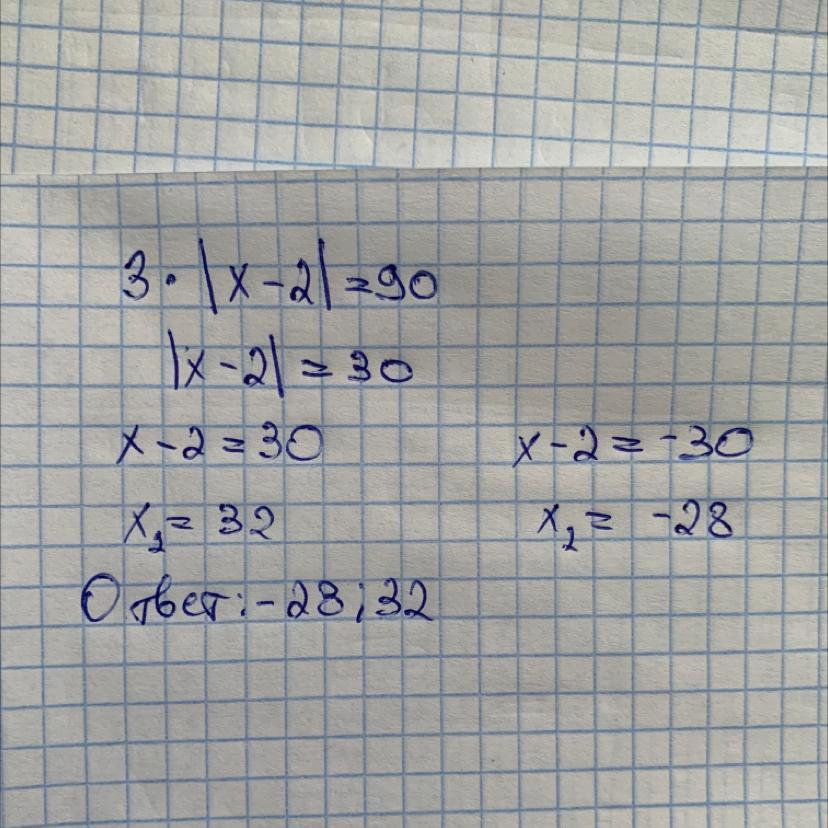 3 · |x - 2| = 90
|x - 2| = 30
x - 2 = 30 x - 2 = -30
x₁ = 32 x₂ = -28
Ответ: -28; 32